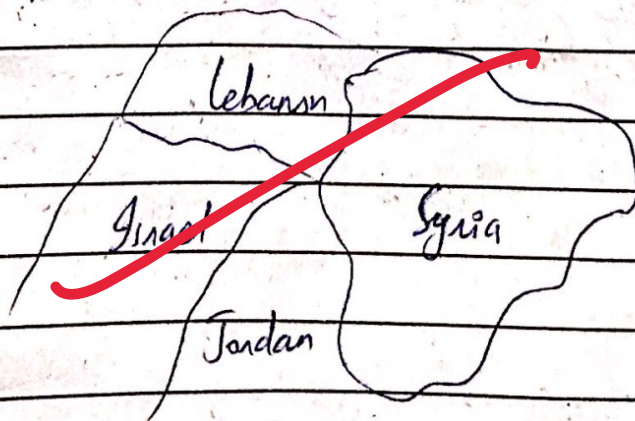 Lebanon
Israel
Syria
Jordan